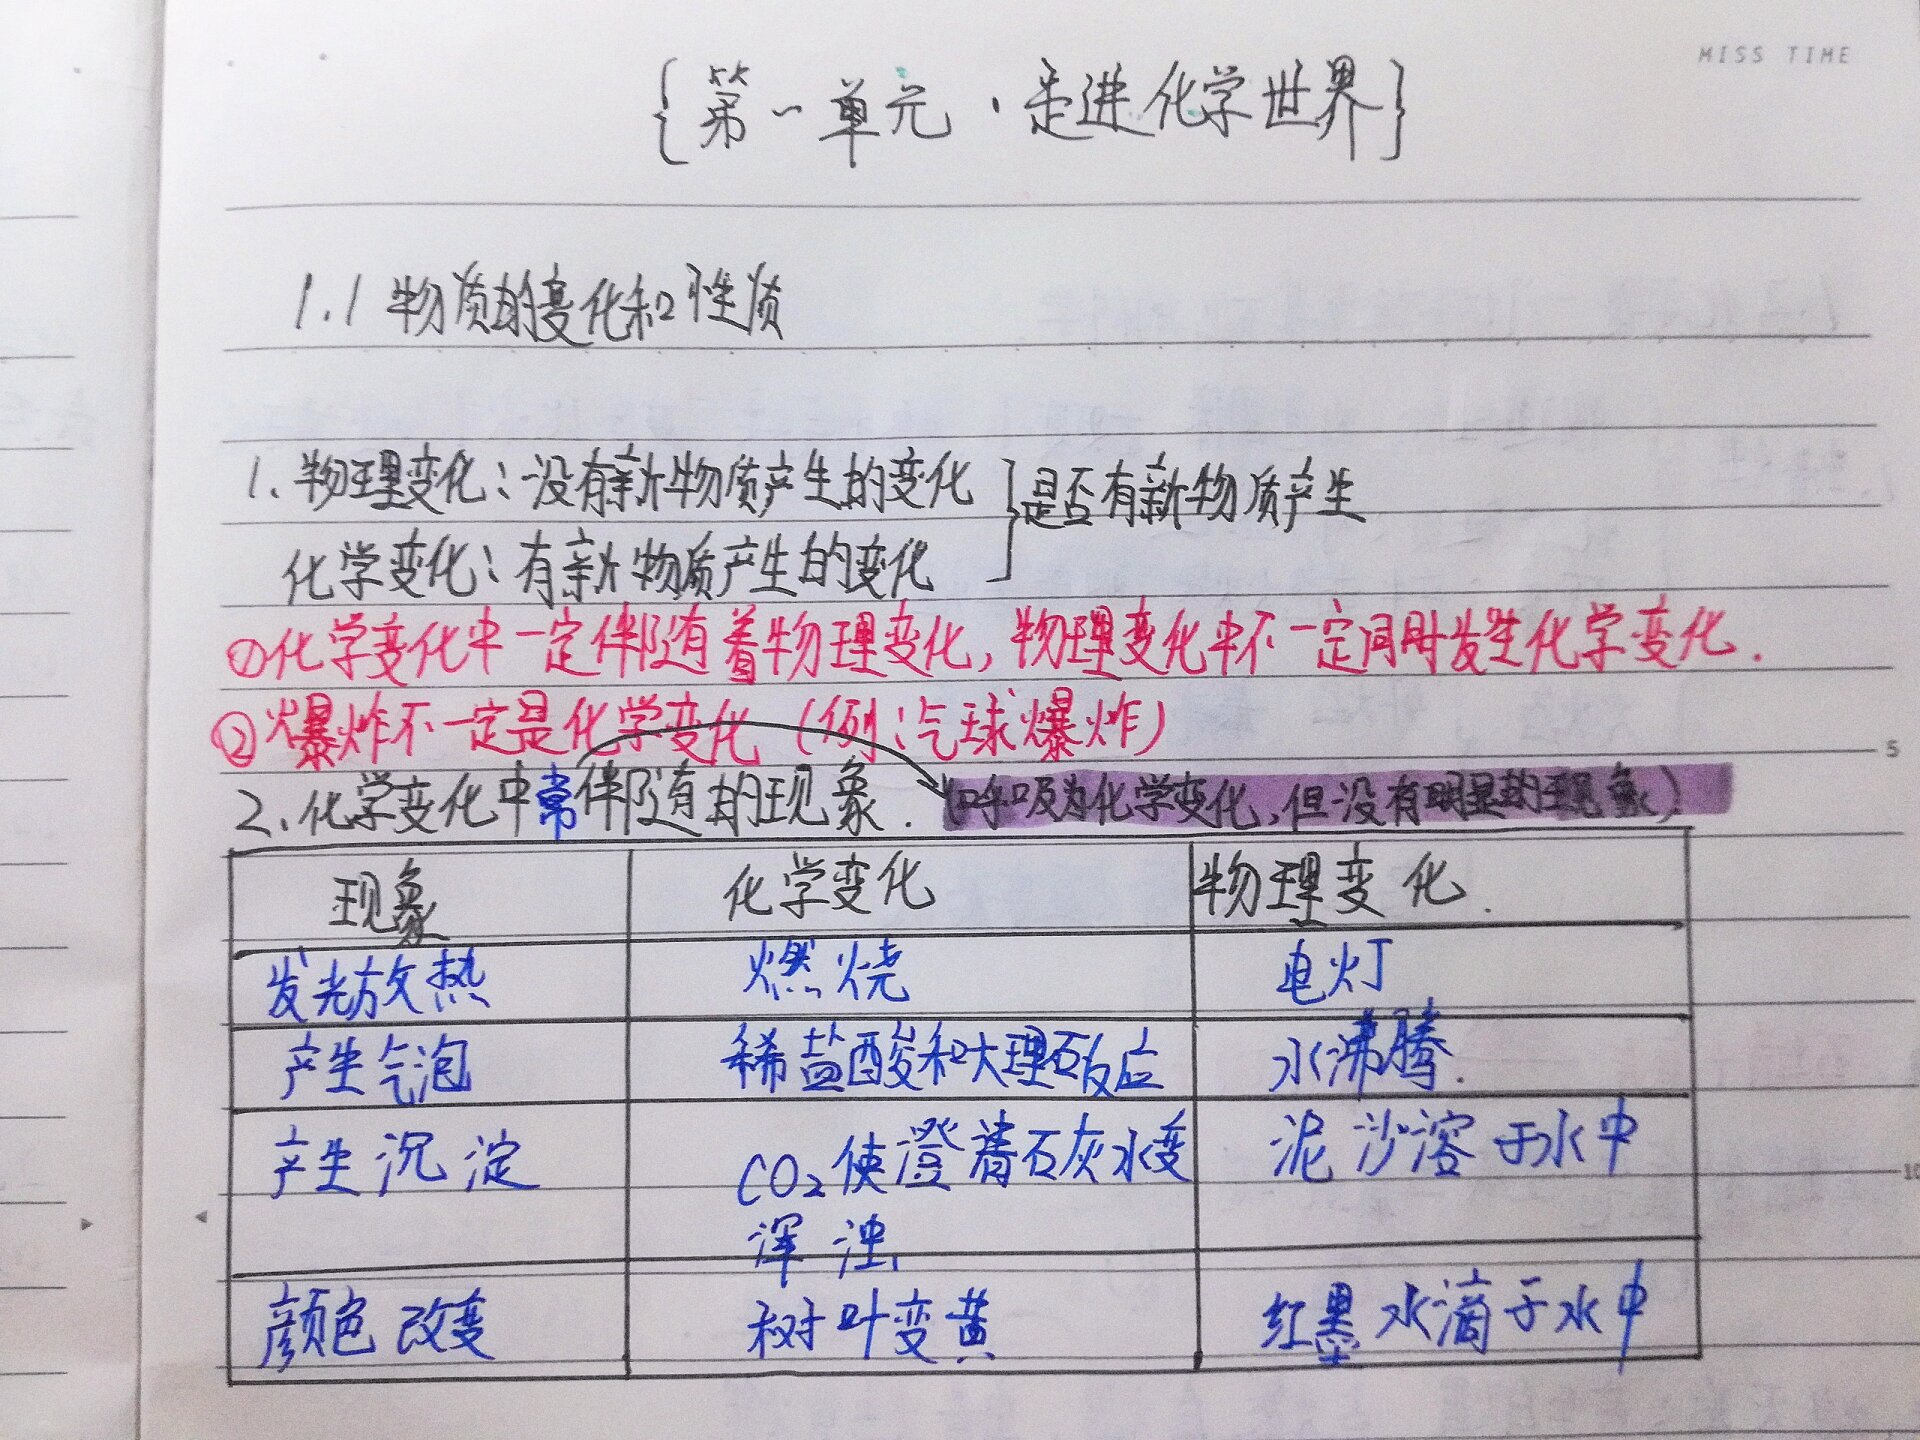 MISS TIME
{第一单元·走进化学世界}
1.1 物质的变化和性质
1、物理变化：没有新物质产生的变化
化学变化：有新物质产生的变化
是否有新物质产生
①化学变化中一定伴随有着物理变化，物理变化中不一定同时发生化学变化.
②爆炸不一定是化学变化（例：气球爆炸）
5
2、化学变化中常伴随有的现象. （呼吸为化学变化，但没有明显的现象）
现象 化学变化 物理变化.
发光放热 燃烧 电灯
产生气泡 稀盐酸和大理石反应 水沸腾.
产生沉淀 CO₂使澄清石灰水变 泥沙溶于水中
10
浑浊
颜色改变 树叶变黄 红墨水滴于水中